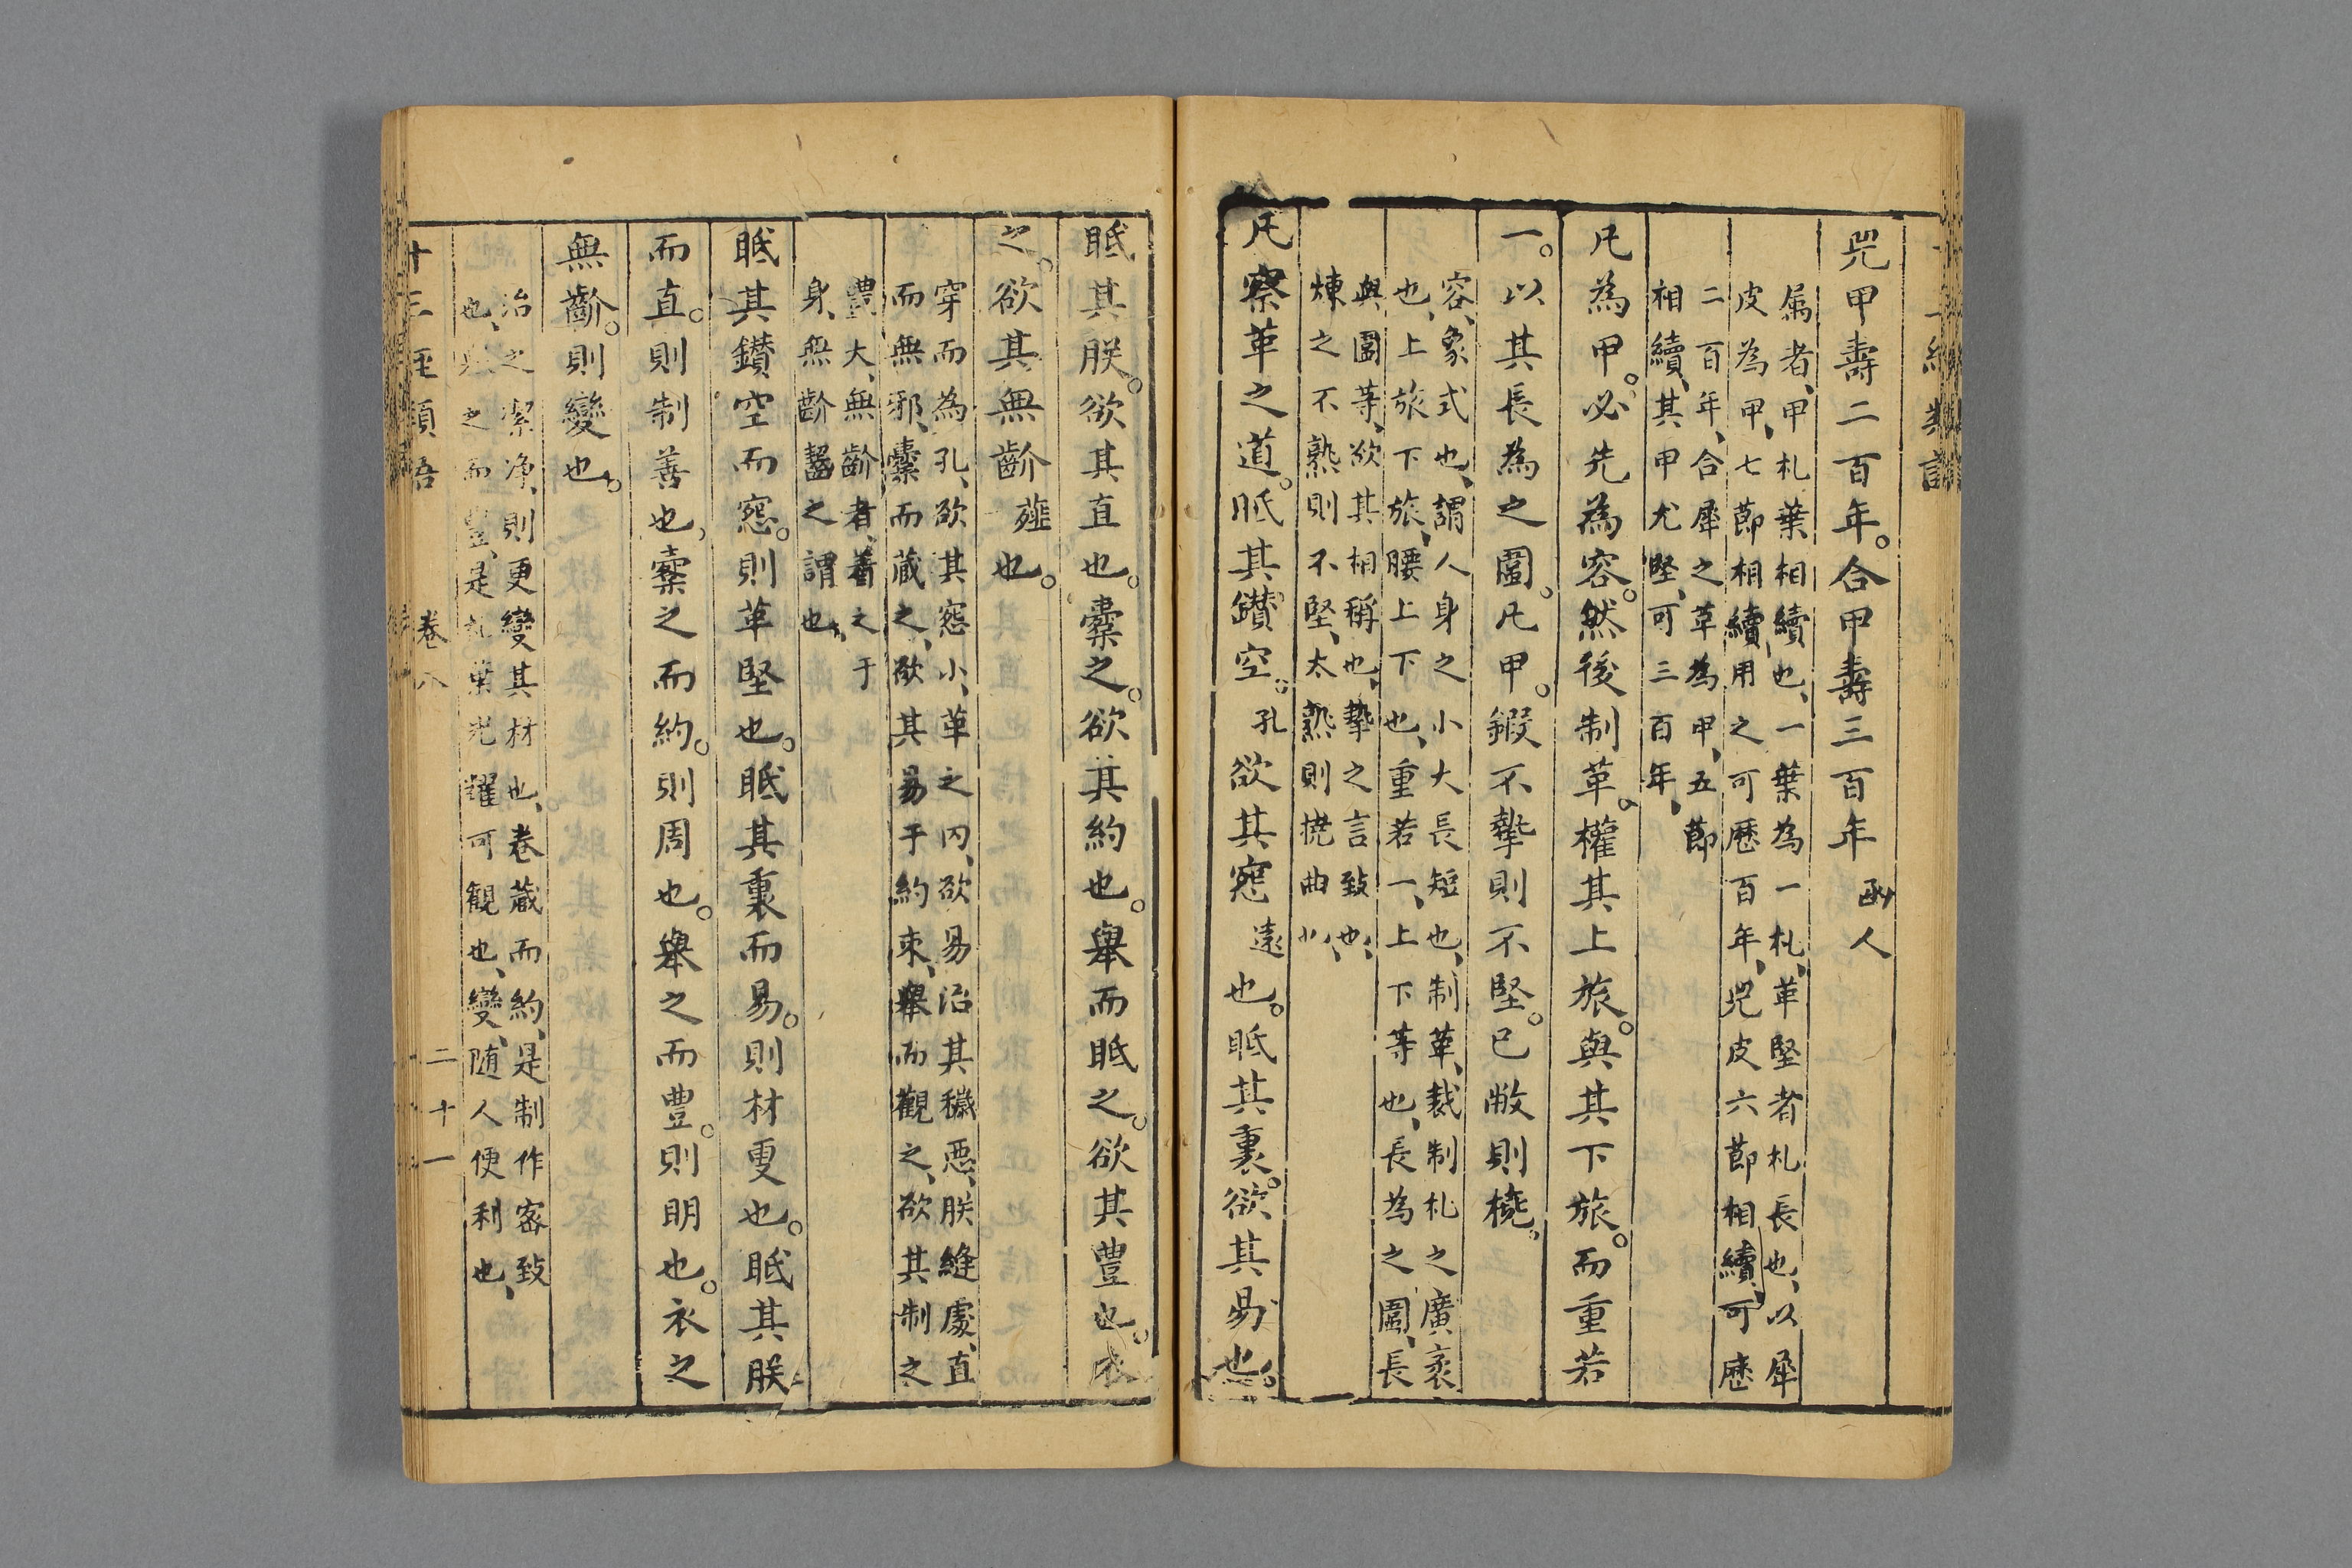 兕甲壽二百年。合甲壽三百年 函人
属者、甲札葉相續也、一葉為一札、革堅者札長也、以犀
皮為甲、七節相續、用之可歴百年、兕皮六節相續、可歴
二百年、合犀之革為甲、五節
相續、其甲尤堅、可三百年、
凡為甲。必先為容。然後制革。權其上旅。與其下旅。而重若
一。以其長為之圍。凡甲。鍜不摯則不堅。已敝則橈。
容、象式也、謂人身之小大長短也、制革、裁制札之廣袤
也、上旅下旅、腰上下也、重若一、上下等也、長為之圍、長
與圍等、欲其相稱也、摯之言致也、
煉之不熟則不堅、太熟則撓曲
凡察革之道。眡其鑚空。孔欲其窓 遠也。眡其裏。欲其易也。
眡其朕。欲其直也。櫜之。欲其約也。舉而眡之。欲其豊也。衣
之。欲其無齘 也。
穿而為孔、欲其窓小、革之内、欲易治其穢悪、朕縫處、直
而無邪、櫜而蔵之、欲其易于約束、舉而觀之、欲其制之
豊大、無齘者、着之于
身、無齘齧之謂也、
眡其鑚空而窓。則革堅也。眡其裏而易。則材更也。眡其朕
而直。則制善也。櫜之而約。則周也。舉之而豊。則明也。衣之
無齘。則變也。
治之潔净、則更變其材也、卷蔵而約、是制作密致
也、之而豊、是葉光耀可観也、變、随人便利也、
十三經類語 卷八 二十一